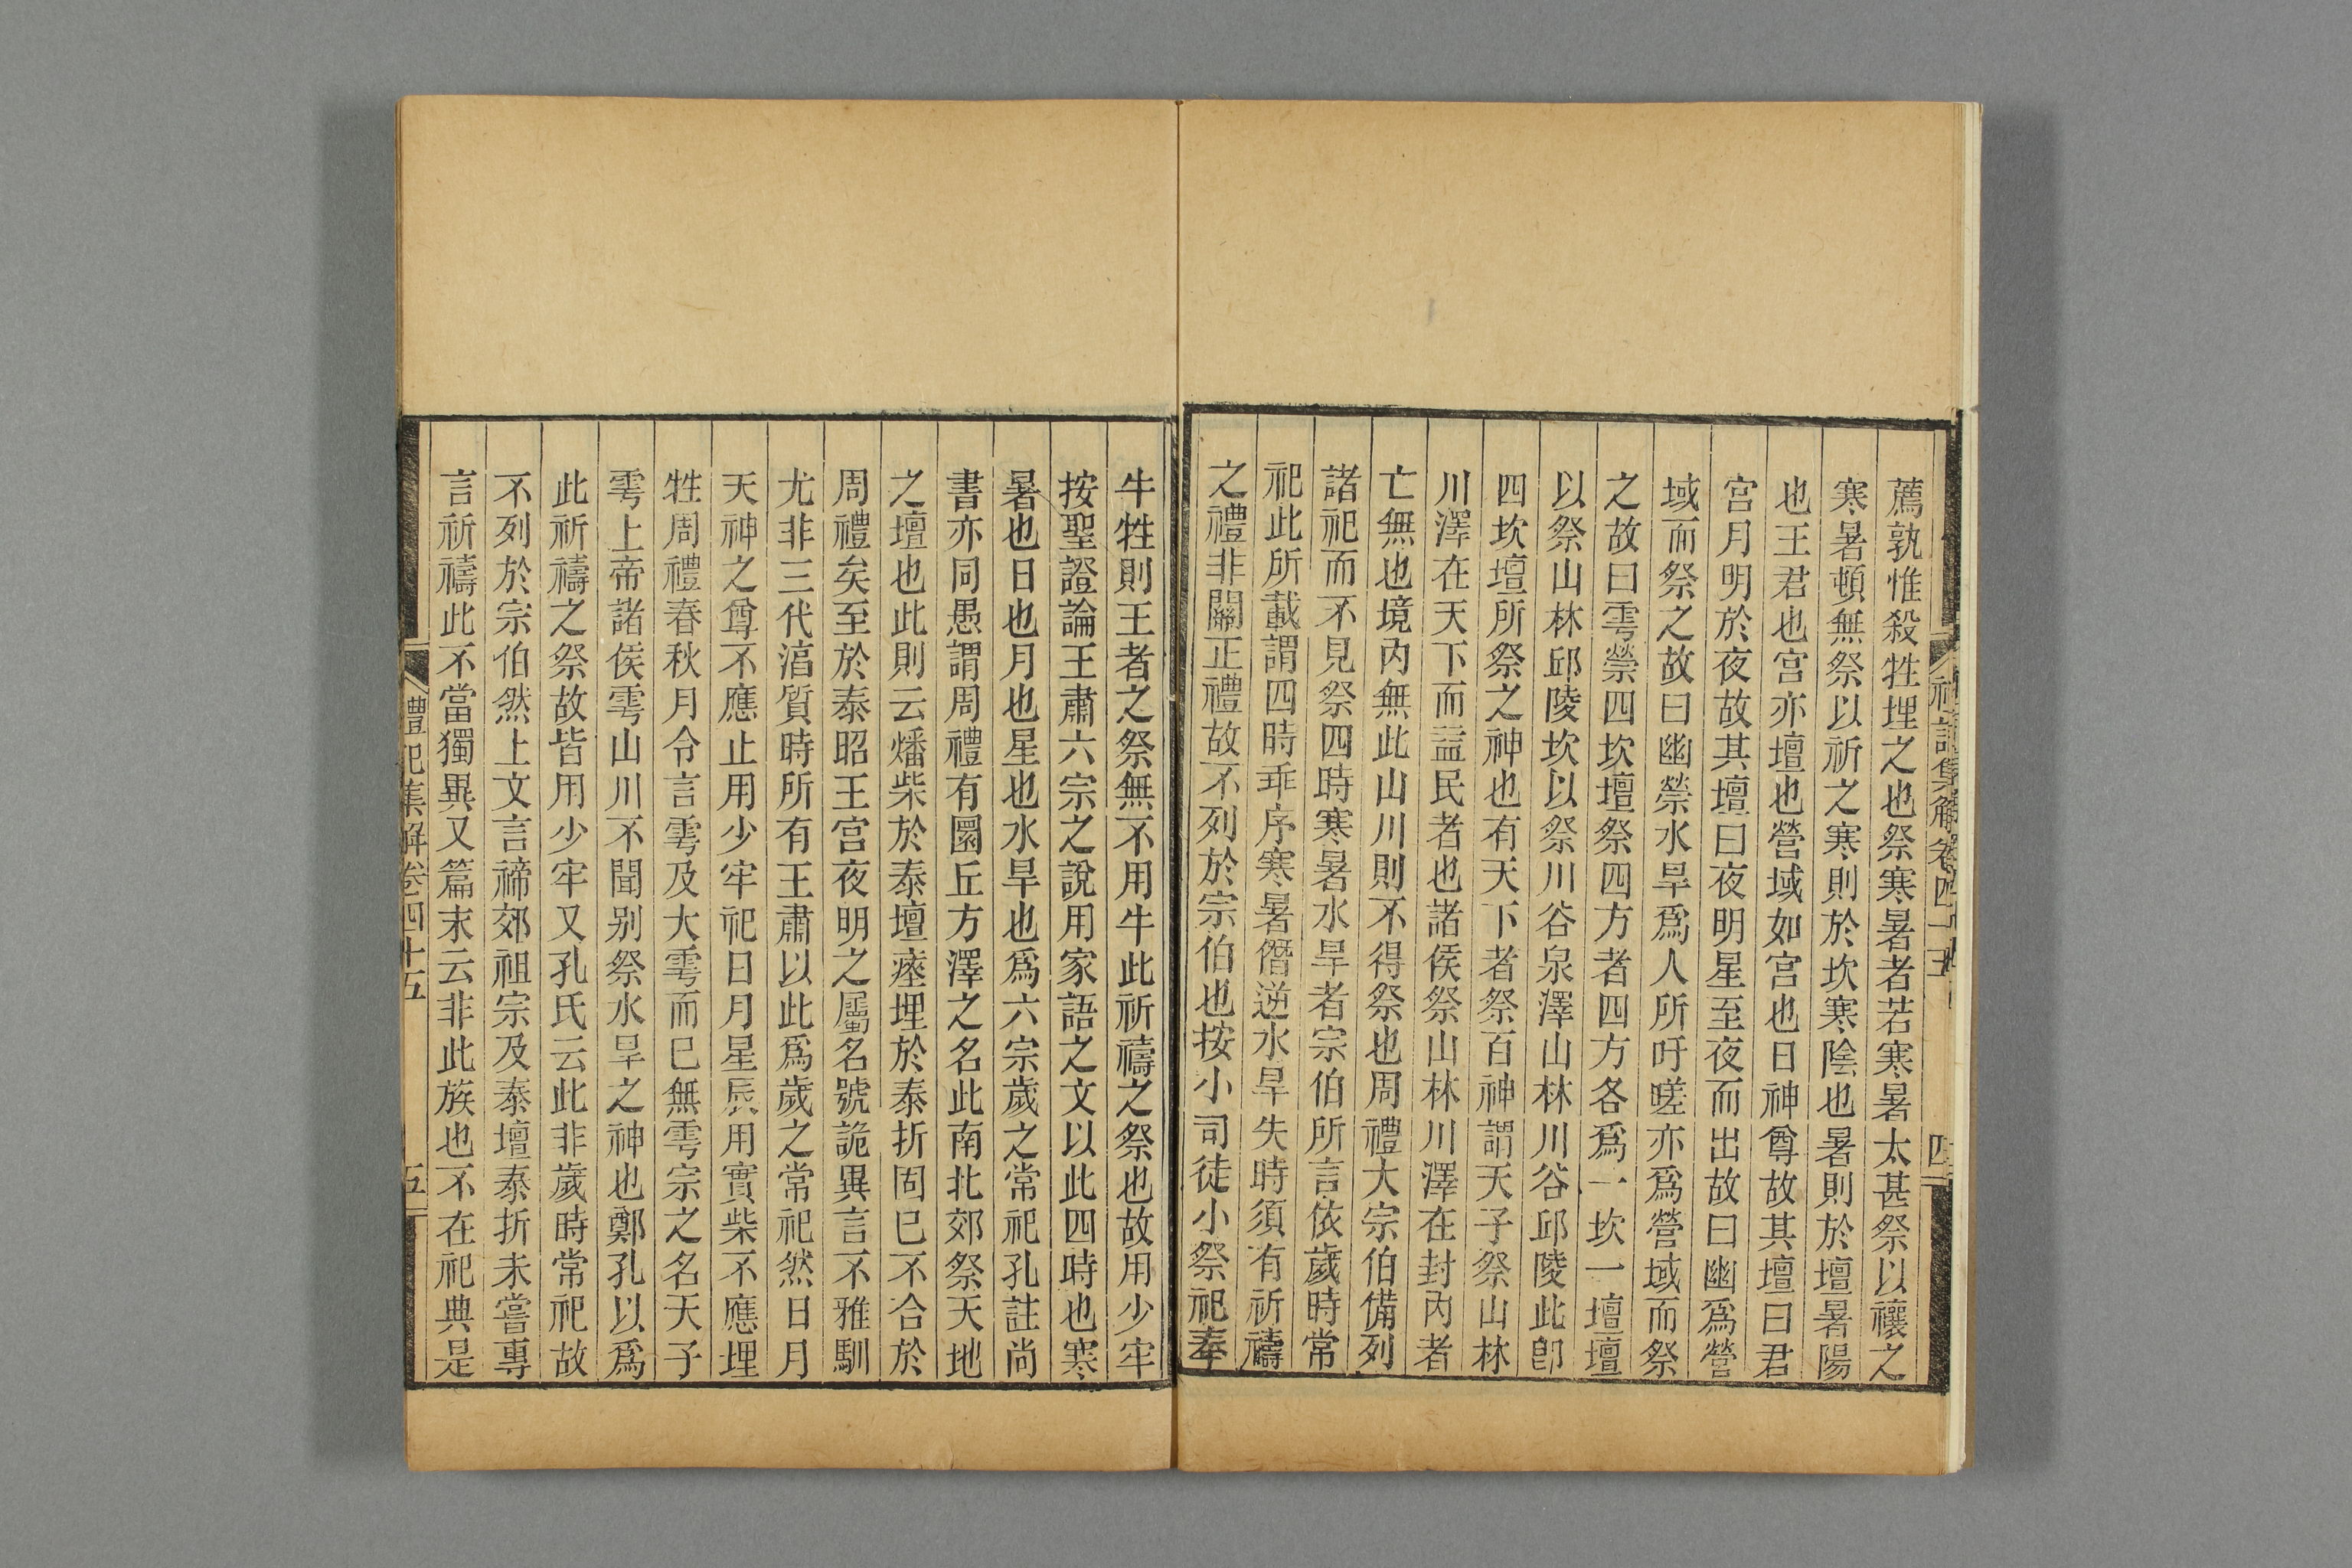 薦孰惟殺牲埋之也祭寒暑者若寒暑太甚祭以禳之
寒暑頓無祭以祈之寒則於坎寒陰也暑則於壇暑陽
也王君也宮亦壇也營域如宮也日神尊故其壇曰君
宮月明於夜故其壇曰夜明星至夜而出故曰幽爲營
域而祭之故曰幽禜水旱爲人所吁嗟亦爲營域而祭
之故曰雩禜四坎壇祭四方者四方各爲一坎一壇壇
以祭山林邱陵坎以祭川谷泉澤山林川谷邱陵此卽
四坎壇所祭之神也有天下者祭百神謂天子祭山林
川澤在天下而益民者也諸侯祭山林川澤在封內者
亡無也境內無此山川則不得祭也周禮大宗伯備列
諸祀而不見祭四時寒暑水旱者宗伯所言依歲時常
祀此所載謂四時乖序寒暑僭逆水旱失時須有祈禱
之禮非關正禮故不列於宗伯也按小司徒小祭祀奉
牛牲則王者之祭無不用牛此祈禱之祭也故用少牢
按聖證論王肅六宗之說用家語之文以此四時也寒
暑也日也月也星也水旱也爲六宗歲之常祀孔註尚
書亦同愚謂周禮有圜丘方澤之名此南北郊祭天地
之壇也此則云燔柴於泰壇瘞埋於泰折固已不合於
周禮矣至於泰昭王宮夜明之屬名號詭異言不雅馴
尤非三代湻質時所有王肅以此爲歲之常祀然日月
天神之尊不應止用少牢祀日月星辰用實柴不應埋
牲周禮春秋月令言雩及大雩而已無雩宗之名天子
雩上帝諸侯雩山川不聞别祭水旱之神也鄭孔以爲
此祈禱之祭故皆用少牢又孔氏云此非歲時常祀故
不列於宗伯然上文言禘郊祖宗及泰壇泰折未嘗專
言祈禱此不當獨異又篇末云非此族也不在祀典是
禮記集解卷四十五
五